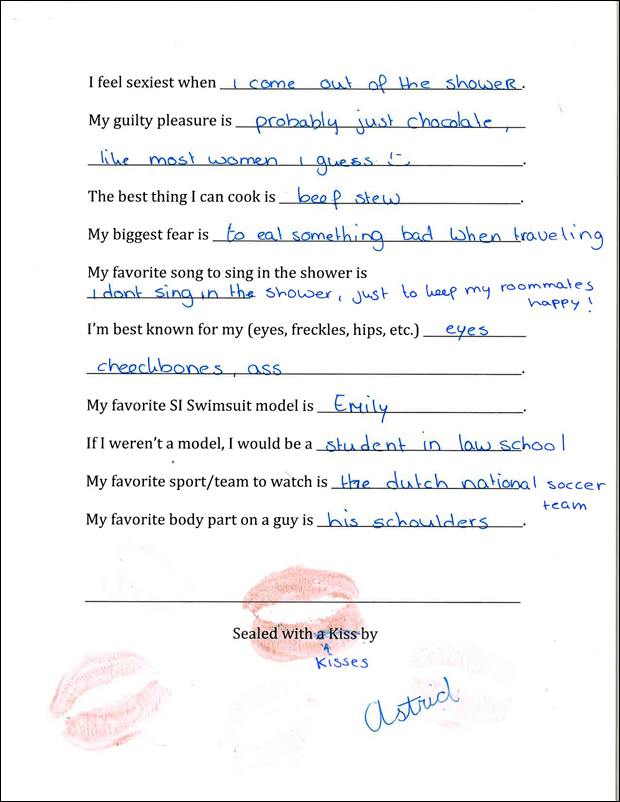 I feel sexiest when I come out of the shower.
My guilty pleasure is probably just chocolate,
like most women I guess :).
The best thing I can cook is beef stew.
My biggest fear is to eat something bad when traveling
My favorite song to sing in the shower is
I dont sing in the shower, just to keep my roommates
happy!
I'm best known for my (eyes, freckles, hips, etc.) eyes
cheeckbones, ass.
My favorite SI Swimsuit model is Emily.
If I weren't a model, I would be a student in law school
My favorite sport/team to watch is the dutch national soccer
team
My favorite body part on a guy is his schoulders.
Sealed with a Kiss by
Kisses
Astrid